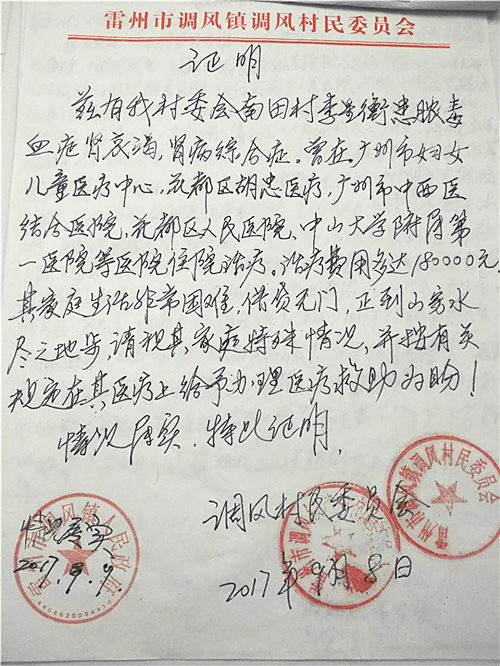 雷州市调风镇调风村民委员会
证明
兹有我村委会南田村李 衡患脓毒
血症肾衰竭,肾病综合症。曾在广州市妇女
儿童医疗中心,花都区胡忠医疗,广州市中西医
结合医院,花都区人民医院、中山大学附属第
一医院等医院住院治疗。治疗费用多达180000元,
其家庭生活非常困难,借贷无门,正到山穷水
尽之地步,请视其家庭特殊情况,并按有关
规定在其医疗上给予办理医疗救助为盼!
情况属实,特此证明。
调风村民委员会
2017年9月8日
情况属实
2017.9.9.
雷州市调风镇人民政府
雷州市调风镇调风村民委员会